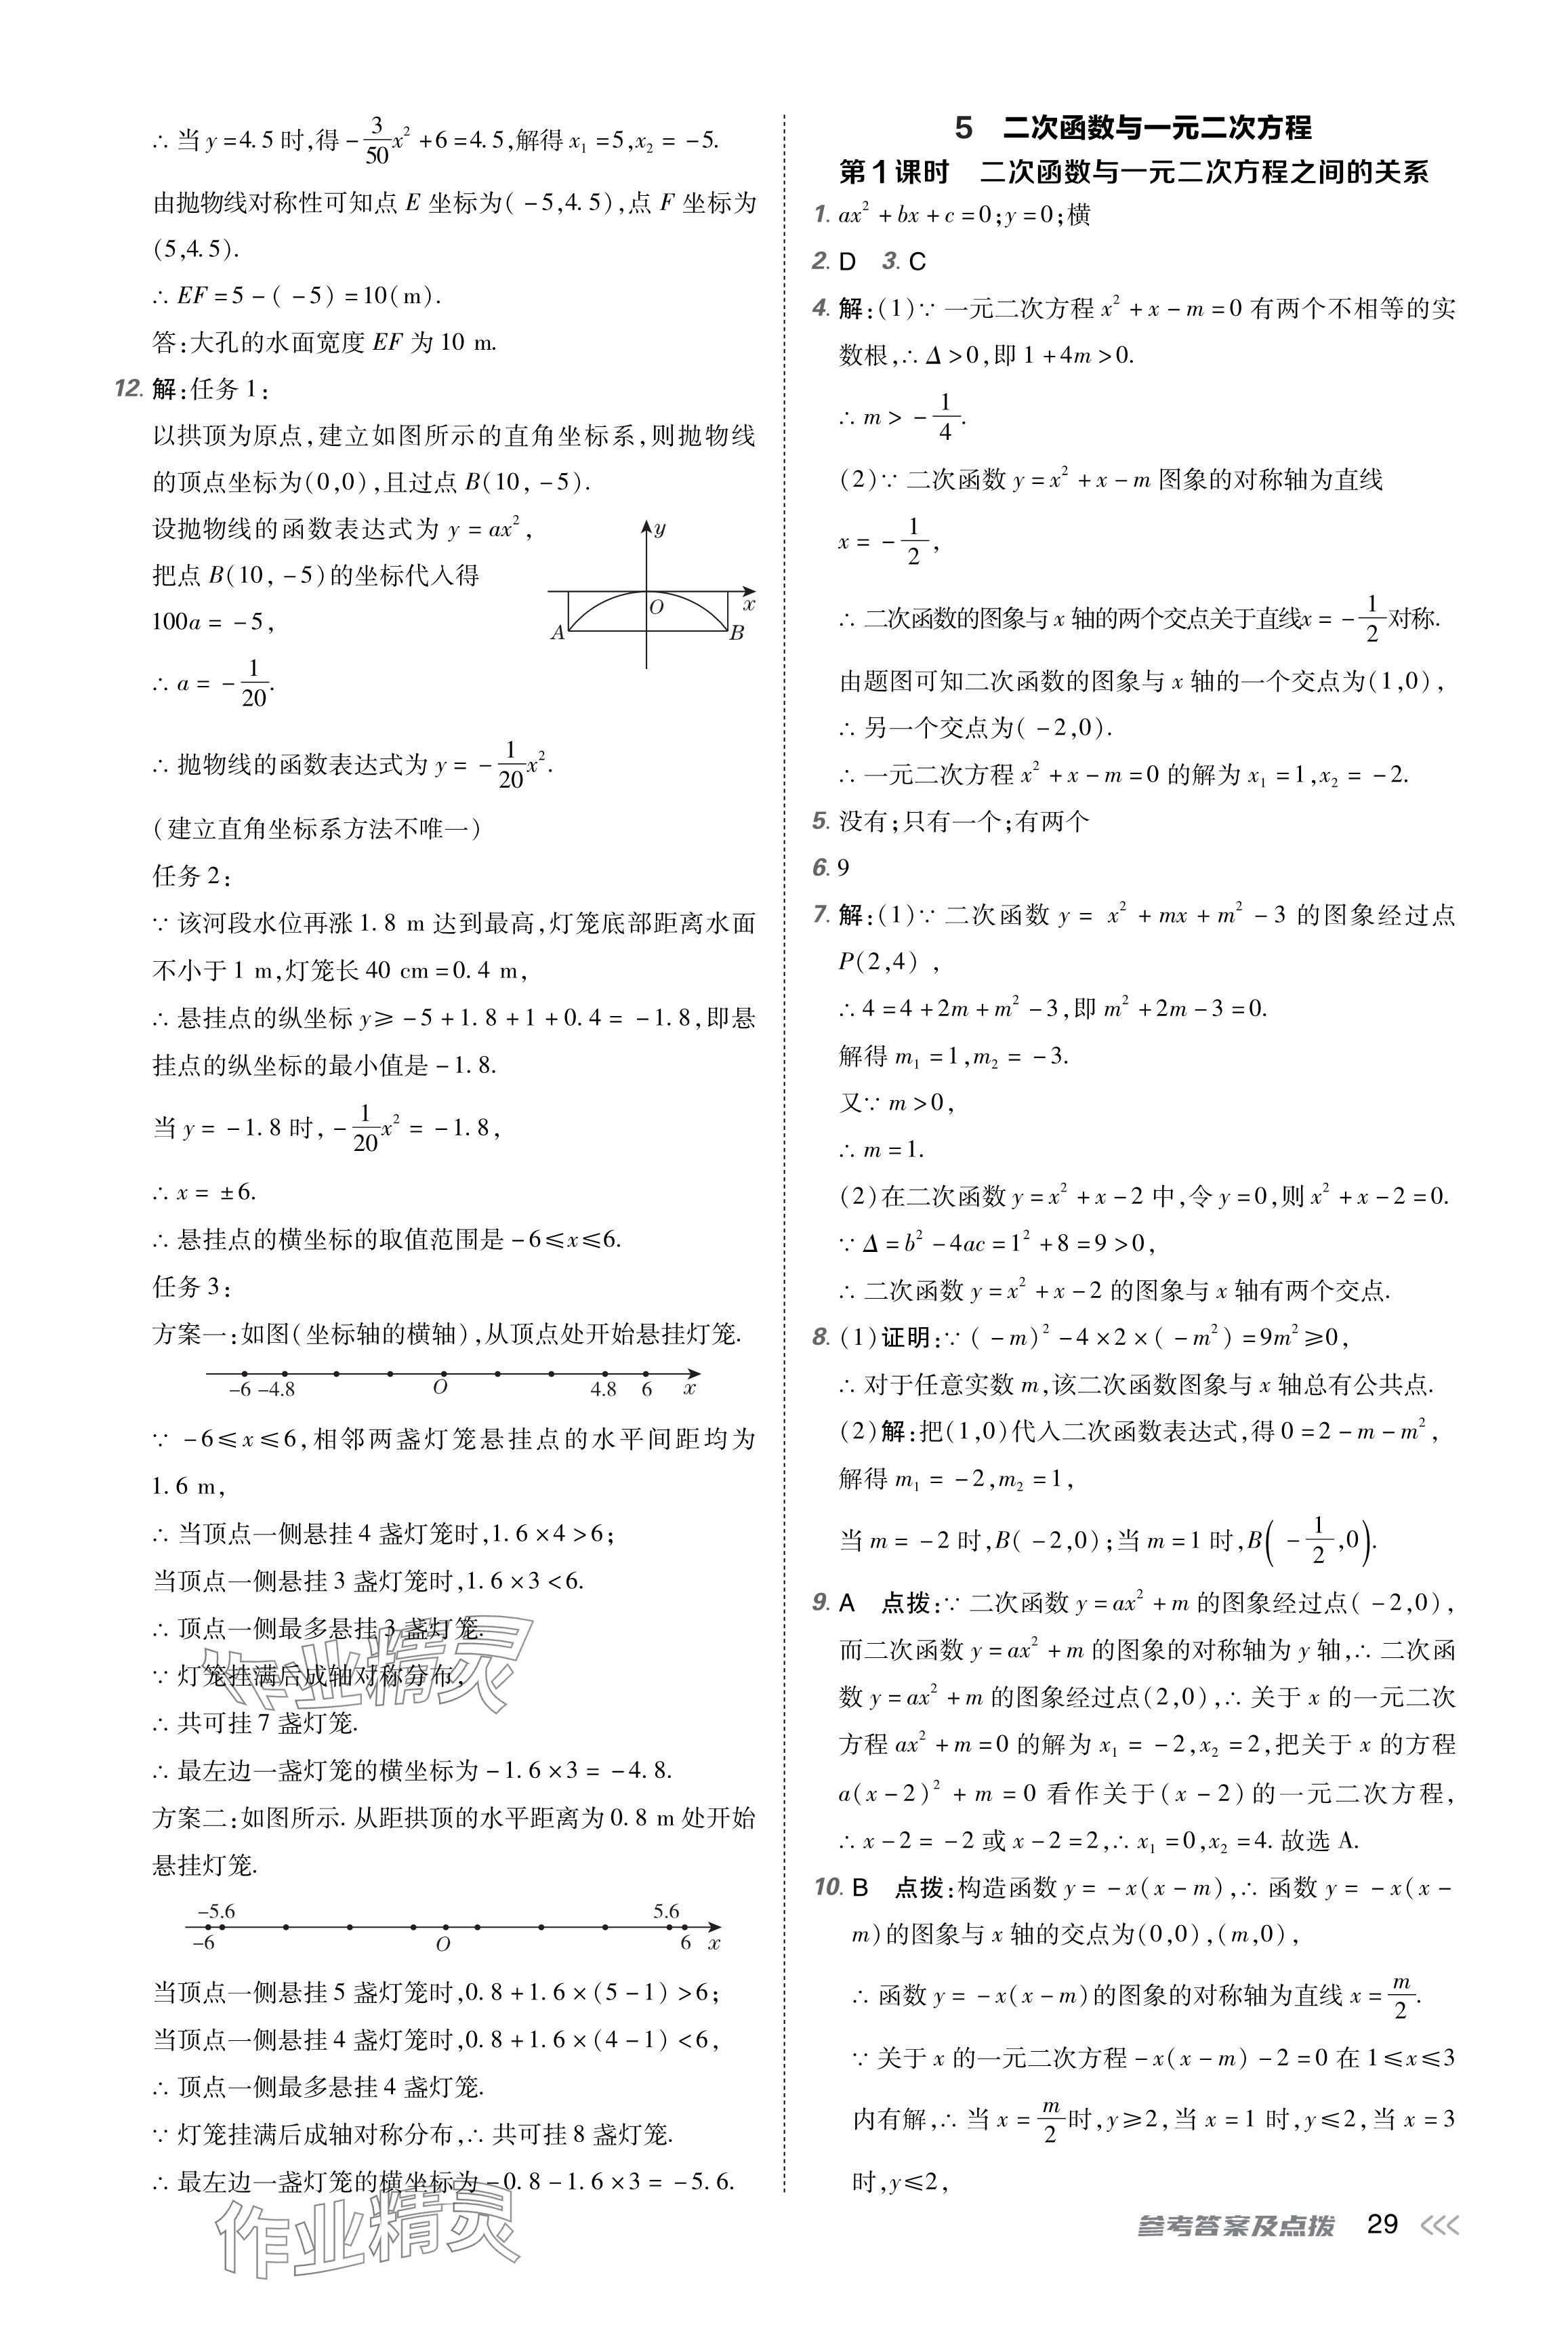 ∴ 当 y=4.5 时,得 -3/50x²+6=4.5,解得 x₁=5,x₂=-5.
由抛物线对称性可知点 E 坐标为(-5,4.5),点 F 坐标为
(5,4.5).
∴ EF=5-(-5)=10(m).
答:大孔的水面宽度 EF 为 10 m.
12. 解:任务 1:
以拱顶为原点,建立如图所示的直角坐标系,则抛物线
的顶点坐标为(0,0),且过点 B(10,-5).
设抛物线的函数表达式为 y=ax²,
把点 B(10,-5)的坐标代入得
100a=-5,
∴ a=-1/20.
y
O
x
A
B
∴ 抛物线的函数表达式为 y=-1/20x².
(建立直角坐标系方法不唯一)
任务 2:
∵ 该河段水位再涨 1.8 m 达到最高,灯笼底部距离水面
不小于 1 m,灯笼长 40 cm=0.4 m,
∴ 悬挂点的纵坐标 y≥-5+1.8+1+0.4=-1.8,即悬
挂点的纵坐标的最小值是-1.8.
当 y=-1.8 时,-1/20x²=-1.8,
∴ x=±6.
∴ 悬挂点的横坐标的取值范围是-6≤x≤6.
任务 3:
方案一:如图(坐标轴的横轴),从顶点处开始悬挂灯笼.
-6 -4.8 O 4.8 6 x
∵ -6≤x≤6,相邻两盏灯笼悬挂点的水平间距均为
1.6 m,
∴ 当顶点一侧悬挂 4 盏灯笼时,1.6×4>6;
当顶点一侧悬挂 3 盏灯笼时,1.6×3<6.
∴ 顶点一侧最多悬挂 3 盏灯笼.
∵ 灯笼挂满后成轴对称分布,
∴ 共可挂 7 盏灯笼.
∴ 最左边一盏灯笼的横坐标为-1.6×3=-4.8.
方案二:如图所示.从距拱顶的水平距离为 0.8 m 处开始
悬挂灯笼.
-5.6 5.6
-6 O 6 x
当顶点一侧悬挂 5 盏灯笼时,0.8+1.6×(5-1)>6;
当顶点一侧悬挂 4 盏灯笼时,0.8+1.6×(4-1)<6,
∴ 顶点一侧最多悬挂 4 盏灯笼.
∵ 灯笼挂满后成轴对称分布,∴ 共可挂 8 盏灯笼.
∴ 最左边一盏灯笼的横坐标为-0.8-1.6×3=-5.6.
作业精灵
作业精灵
5 二次函数与一元二次方程
第 1 课时 二次函数与一元二次方程之间的关系
1. ax²+bx+c=0;y=0;横
2. D 3. C
4. 解:(1)∵ 一元二次方程 x²+x-m=0 有两个不相等的实
数根,∴ Δ>0,即 1+4m>0.
∴ m>-1/4.
(2)∵ 二次函数 y=x²+x-m 图象的对称轴为直线
x=-1/2,
∴ 二次函数的图象与 x 轴的两个交点关于直线x=-1/2对称.
由题图可知二次函数的图象与 x 轴的一个交点为(1,0),
∴ 另一个交点为(-2,0).
∴ 一元二次方程 x²+x-m=0 的解为 x₁=1,x₂=-2.
5. 没有;只有一个;有两个
6. 9
7. 解:(1)∵ 二次函数 y=x²+mx+m²-3 的图象经过点
P(2,4),
∴ 4=4+2m+m²-3,即 m²+2m-3=0.
解得 m₁=1,m₂=-3.
又∵ m>0,
∴ m=1.
(2)在二次函数 y=x²+x-2 中,令 y=0,则 x²+x-2=0.
∵ Δ=b²-4ac=1²+8=9>0,
∴ 二次函数 y=x²+x-2 的图象与 x 轴有两个交点.
8. (1)证明:∵ (-m)²-4×2×(-m²)=9m²≥0,
∴ 对于任意实数 m,该二次函数图象与 x 轴总有公共点.
(2)解:把(1,0)代入二次函数表达式,得 0=2-m-m²,
解得 m₁=-2,m₂=1,
当 m=-2 时,B(-2,0);当 m=1 时,B(-1/2,0).
9. A 点拨:∵ 二次函数 y=ax²+m 的图象经过点(-2,0),
而二次函数 y=ax²+m 的图象的对称轴为 y 轴,∴ 二次函
数 y=ax²+m 的图象经过点(2,0),∴ 关于 x 的一元二次
方程 ax²+m=0 的解为 x₁=-2,x₂=2,把关于 x 的方程
a(x-2)²+m=0 看作关于(x-2)的一元二次方程,
∴ x-2=-2 或 x-2=2,∴ x₁=0,x₂=4. 故选 A.
10. B 点拨:构造函数 y=-x(x-m),∴ 函数 y=-x(x-
m)的图象与 x 轴的交点为(0,0),(m,0),
∴ 函数 y=-x(x-m)的图象的对称轴为直线 x=m/2.
∵ 关于 x 的一元二次方程-x(x-m)-2=0 在 1≤x≤3
内有解,∴ 当 x=m/2时,y≥2,当 x=1 时,y≤2,当 x=3
时,y≤2,
参考答案及点拨 29